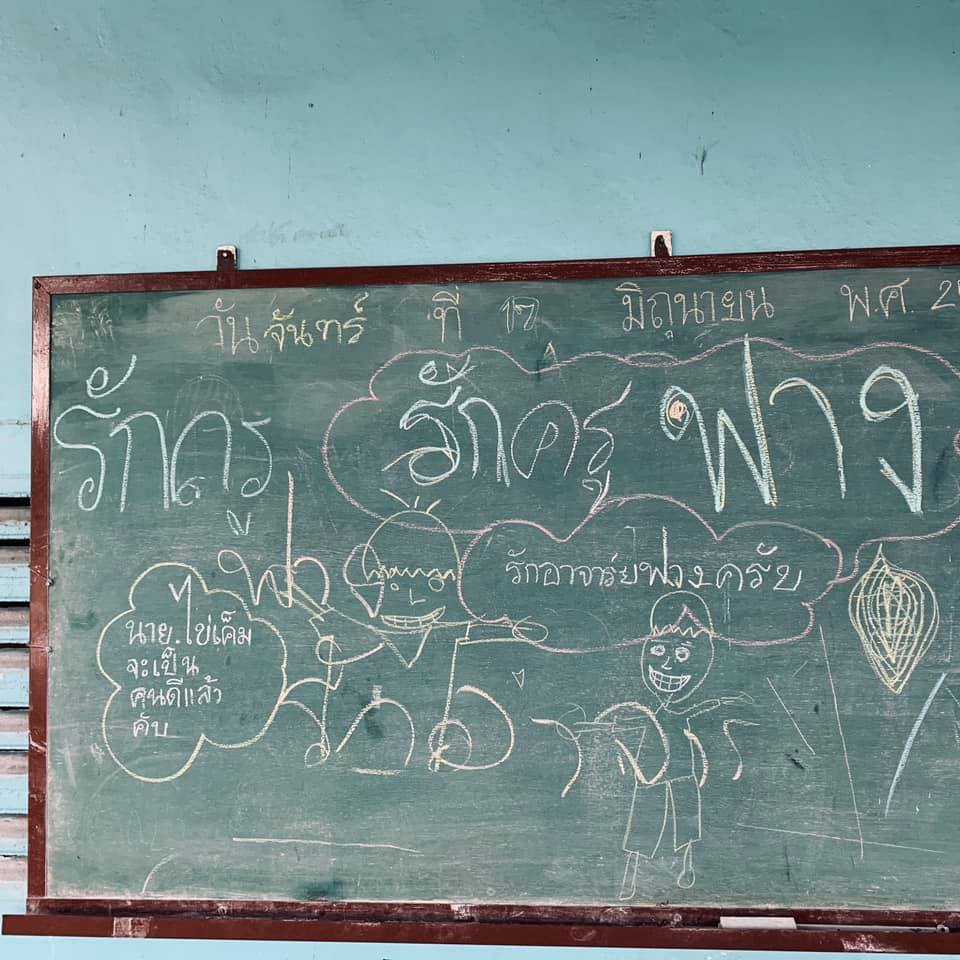 วันจันทร์ ที่ 17 มิถุนายน พ.ศ. 2
รักครู
รักครู ฟาง
รักอาจารย์ฟางครับ
นาย.ไข่เค็ม
จะเป็น
คนดีแล้ว
คับ